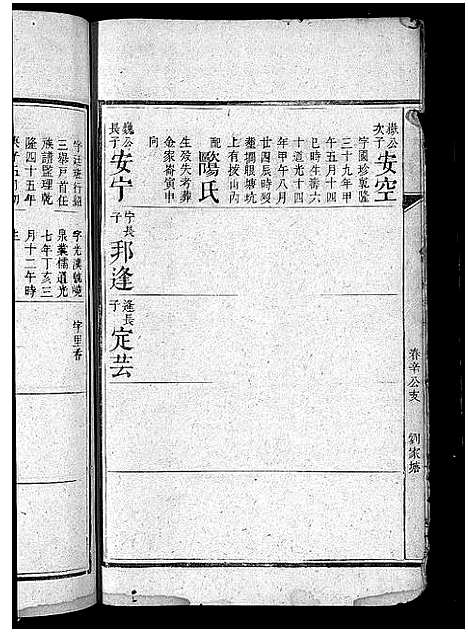 春辛公支　劉家塘
嶽公次子
安空
字國珍乾隆
三十九年甲
午五月十四
巳時生壽六
十道光十四
年甲午八月
廿四辰時歿
蓮塘眼塘坑
上有按山內
配
陽氏
生歿失考葬
金家崙寅申
向
巍公長子
安宁
宁長子
邦逢
逢長子
定芸
字廷璉行紹
三舉戶首任
族請監理乾
隆四十五年
庚子五月初
字光漢號曉
泉業儒道光
七年丁亥三
月十二午時
生
字里香